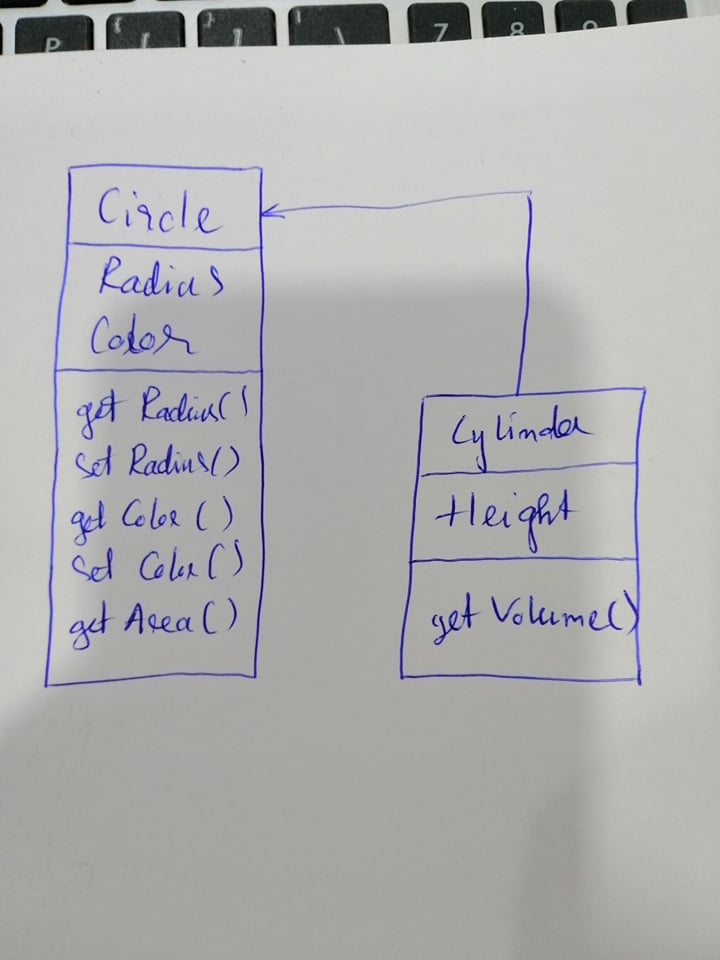 P { [ } ] | \ 7 8 9
Circle
Radius
Color
get Radius()
Set Radius()
get Color()
Set Color()
get Area()
Cylinder
Height
get Volume()